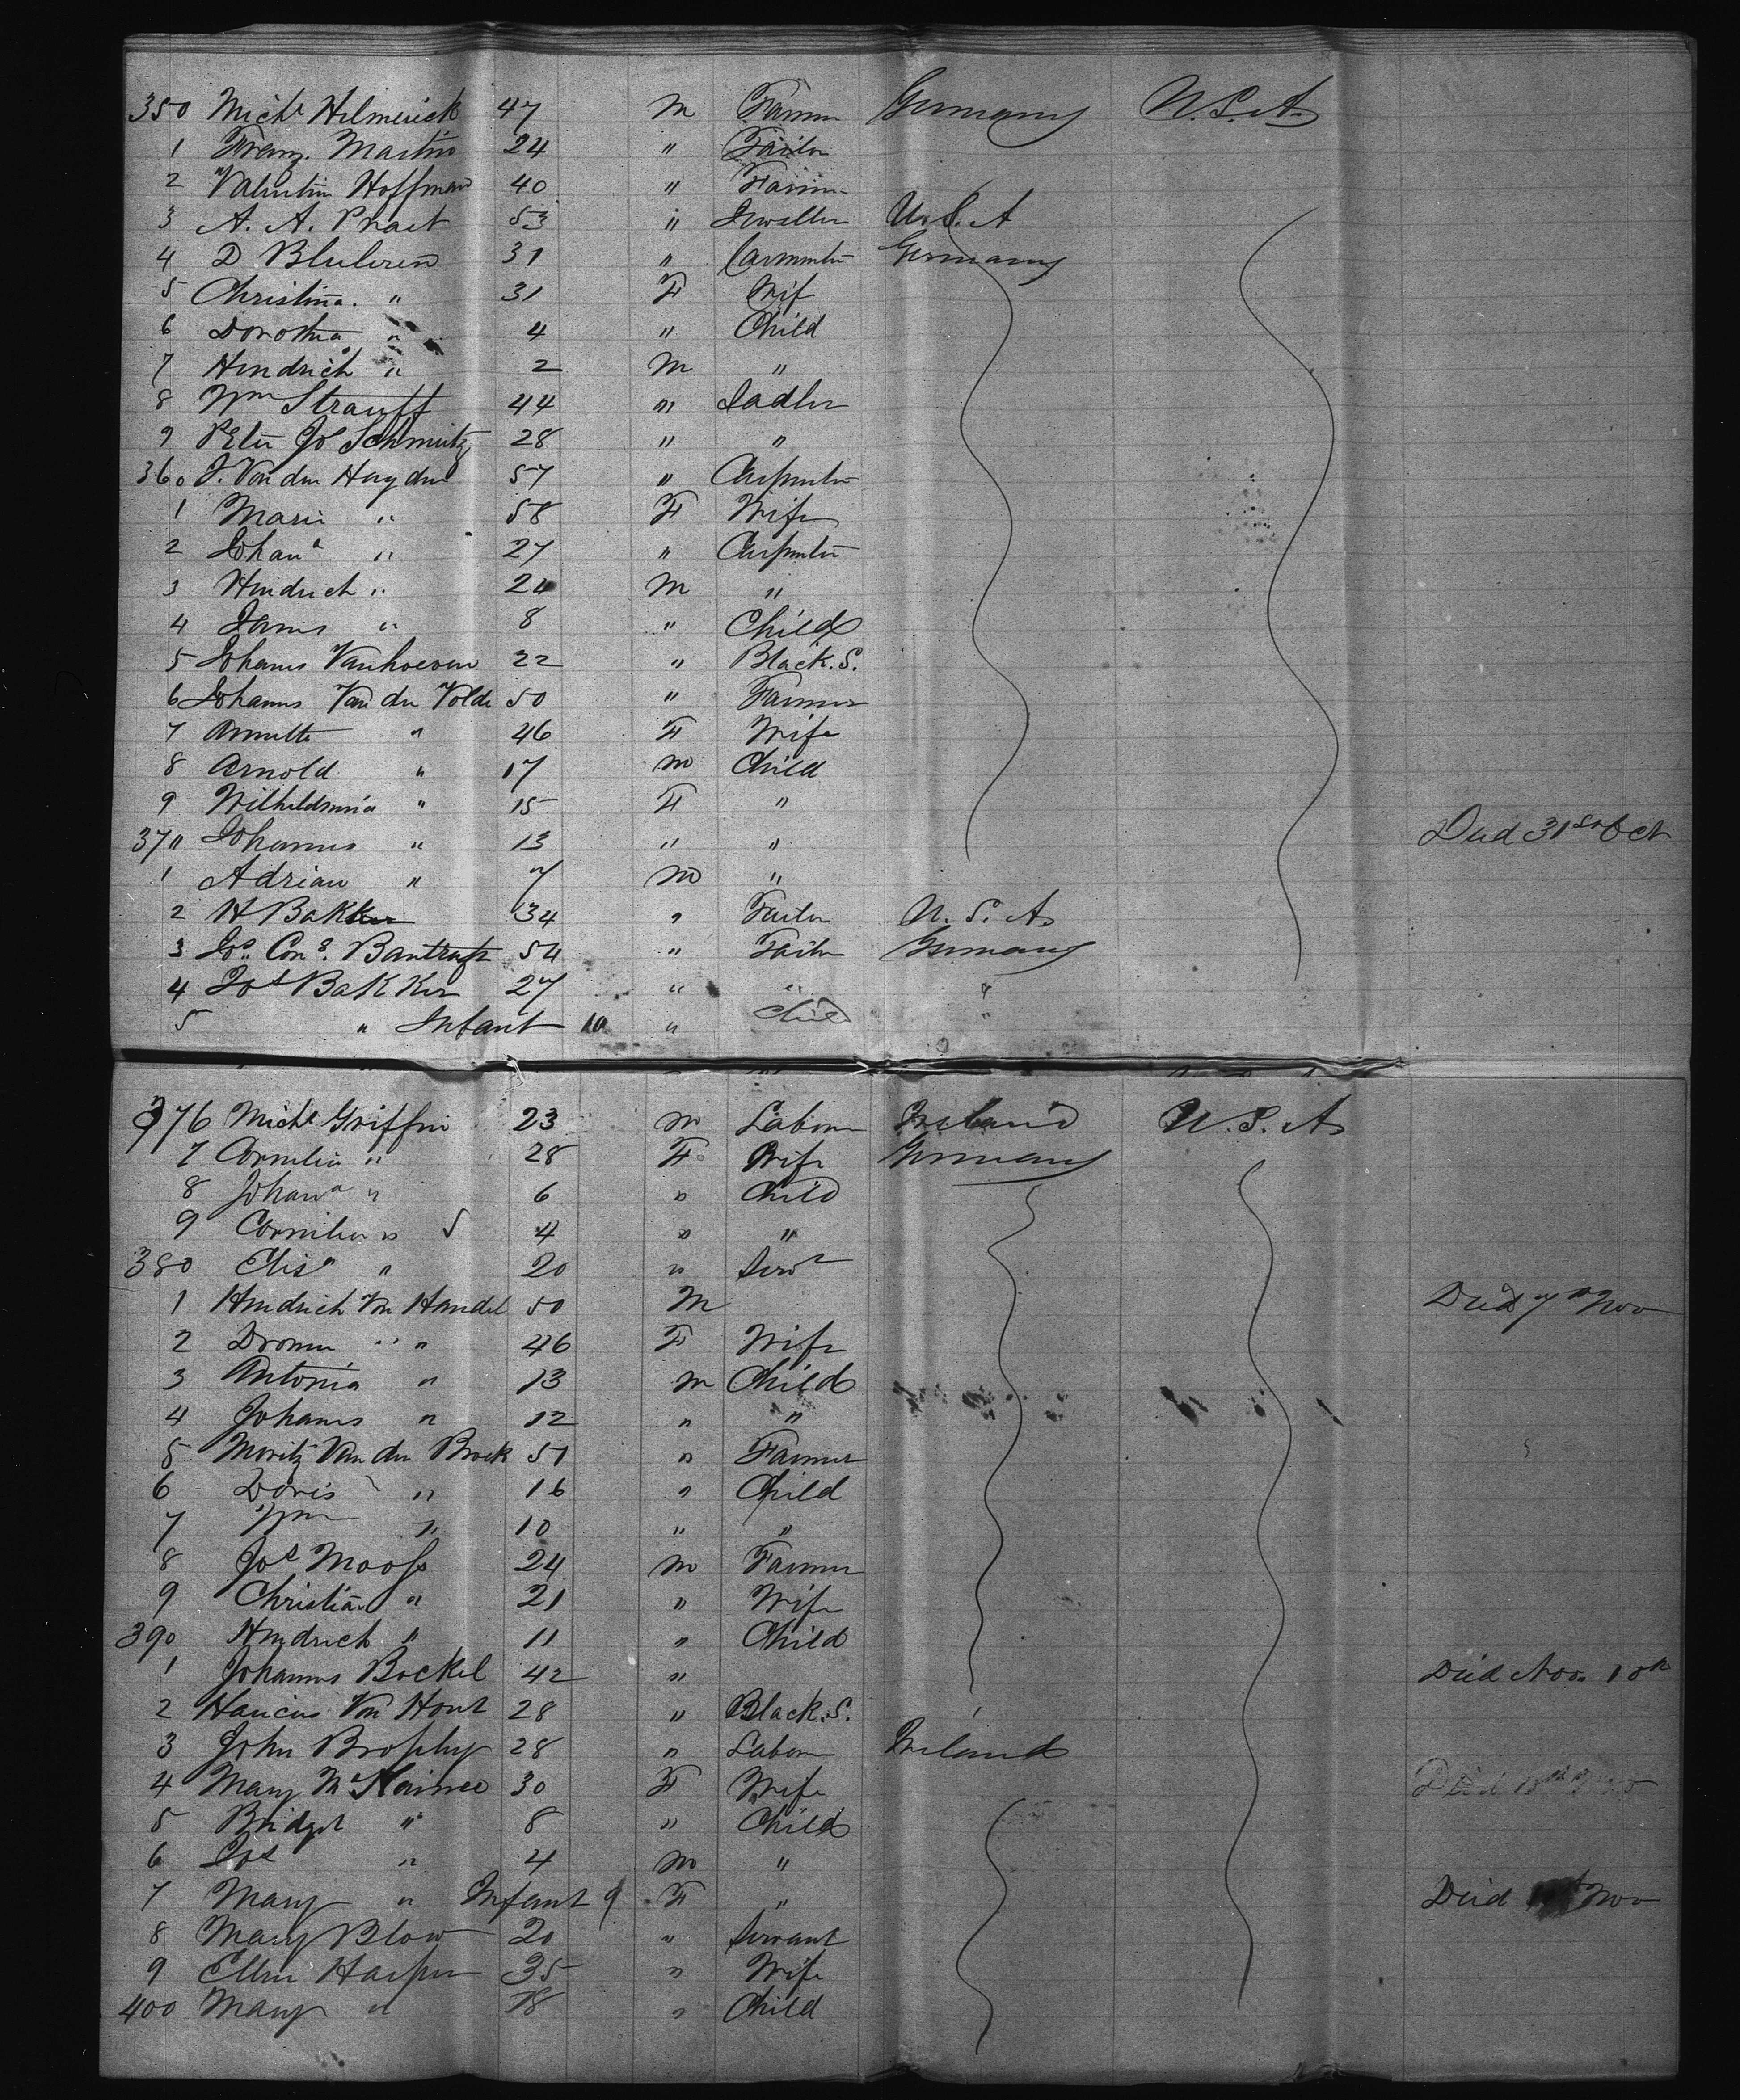 350 Michl Hilmerick 47 M Farmer Germany U.S.A.
1 Franz. Martin 24 " Tailor
2 Valentin Hoffman 40 " Farmer
3 A. A. Praet 53 " Jeweller U.S.A
4 D 31 " Carpenter Germany
5 Christina. " 31 F Wif
6 Dorothea " 4 " Child
7 Hendrich " 2 M "
8 Wm Strauff 44 " Sadler
9 Peter Js Schmitz 28 " "
360 J. Von den Heyden 57 " Carpenter
1 Marie " 58 F Wife
2 Johana " 27 " Carpenter
3 Hendrich " 24 M "
4 James " 8 " Child
5 Johanes Vanhoeven 22 " Black.S.
6 Johannes Van der Volde 50 " Farmer
7 Annette " 46 F Wife
8 Arnold " 17 M Child
9 " 15 F "
370 Johannes " 13 " " Died 31st Oct
1 Adrian " 7 M "
2 H Bakker 34 " Tailor U.S.A.
3 Js. Cons. 54 " Tailor Germany
4 Jos Bakker 27 " " "
5 " Infant 10 " Child "
376 Michl Griffin 23 M Labour Ireland U.S.A
7 Cornelia " 28 F Wife Germany
8 Johana " 6 " Child
9 Cornelia " 4 " "
380 Elisa " 20 " Servt
1 Hendrich Van Handel 50 M Died 7th Nov
2 " " 46 F Wife
3 Antonia " 13 M Child
4 Johanes " 12 " "
5 Moritz Van der Broek 51 " Farmer
6 Doris " 16 " Child
7 Wm " 10 " "
8 Jos Moofs 24 M Farmer
9 Christian " 21 " Wife
390 Hendrich " 11 " Child
1 Johannes Bockel 42 " Died Nov. 10th
2 Von Hout 28 " Black.S.
3 John Brophy 28 " Labour Ireland
4 Mary 30 F Wife Died
5 Bridget " 8 " Child
6 Jos " 4 M "
7 Mary " Infant 9 F " Died Nov
8 Mary Blow 20 " Servant
9 Ellen Harper 35 " Wife
400 Mary " 18 " Child